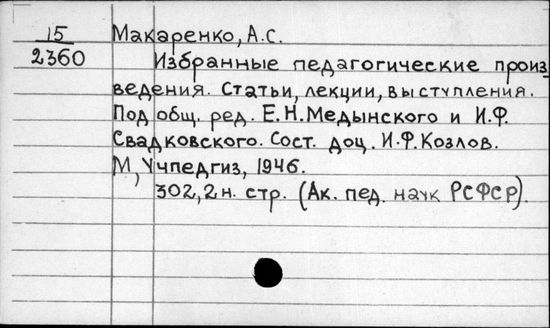 15
2360
Макаренко, А.С.
Избранные педагогические произ
ведения. Статьи, лекции, выступления.
Под общ. ред. Е.Н.Медынского и И.Ф.
Свадковского. Сост. доц. И.Ф.Козлов.
М, Учпедгиз, 1946.
302, 2 н. стр. (Ак. пед. наук РСФСР).